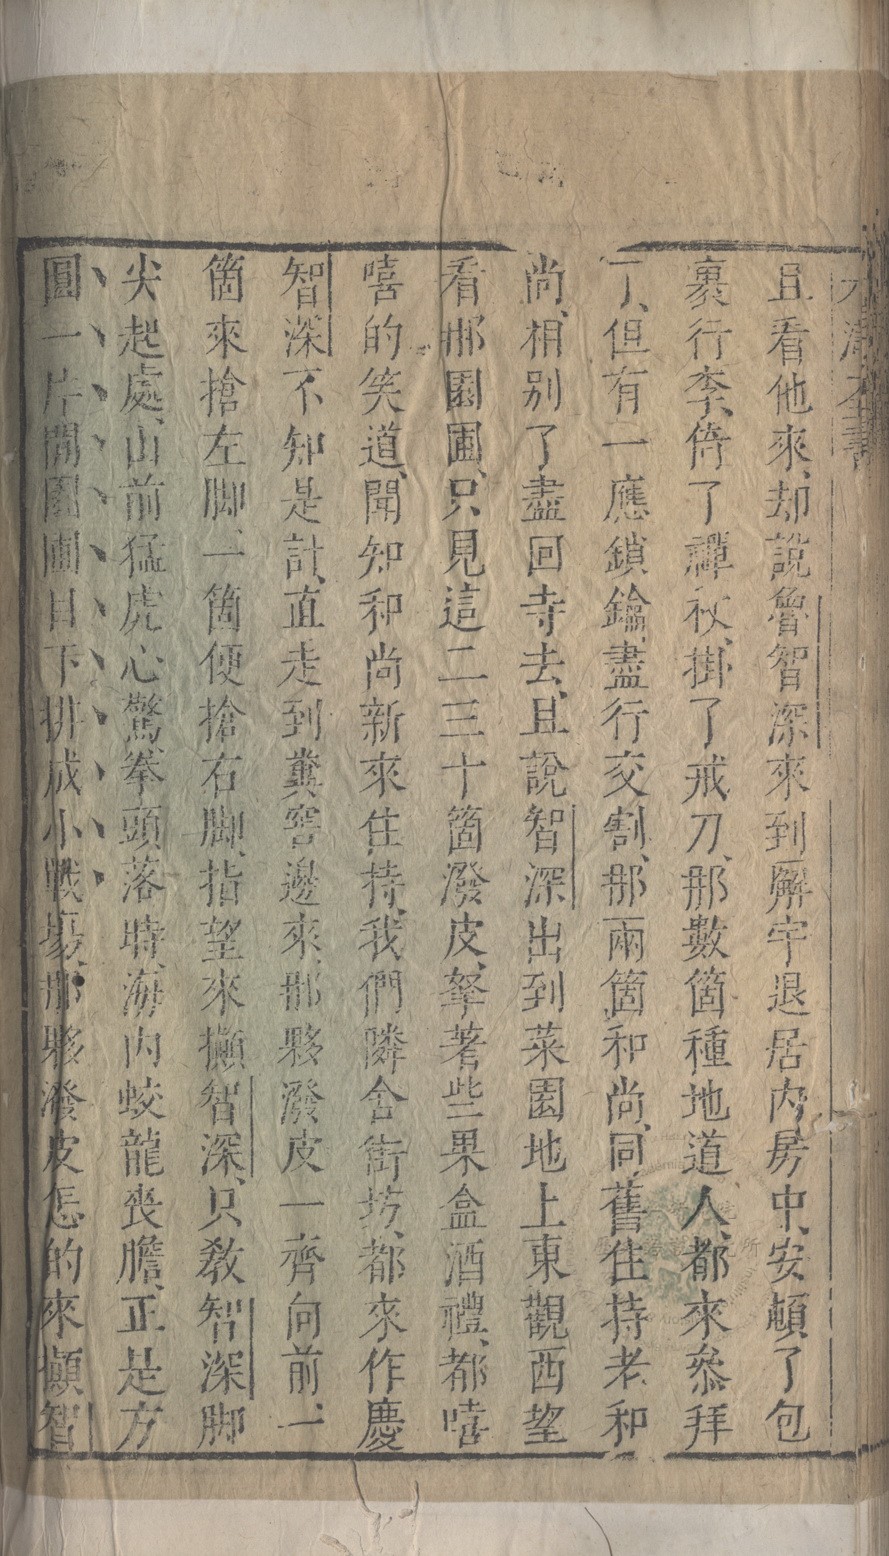 水滸全書
且看他來、却說魯智深來到廨宇退居內房中、安頓了包
裹行李、倚了禪杖、掛了戒刀、那數箇種地道人、都來參拜
了、但有一應鎖鑰、盡行交割、那兩箇和尚、同舊住持老和
尚、相别了盡回寺去、且說智深出到菜園地上東觀西望
看那園圃、只見這二三十箇潑皮、拏著些果盒酒禮、都嘻
嘻的笑道、聞知和尚新來住持、我們隣舍街坊、都來作慶
智深不知是計、直走到糞窖邊來、那夥潑皮一齊向前、一
箇來搶左脚、一箇便搶右脚、指望來攧智深、只教智深脚
尖起處、山前猛虎心驚、拳頭落時、海內蛟龍喪膽、正是方
圓一片閒園圃目下排成小戰場、那夥潑皮怎的來攧智